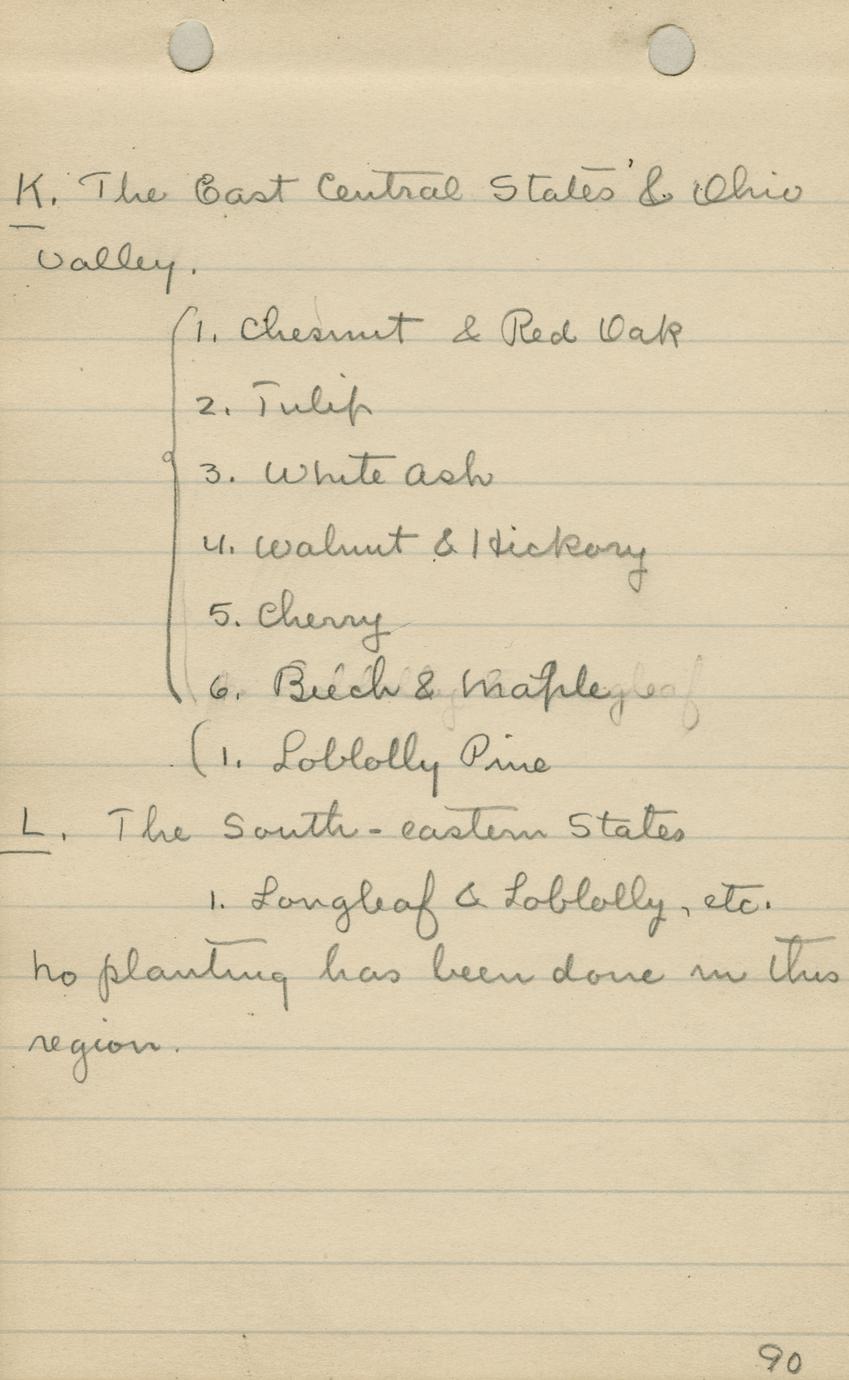 K. The East Central States & Ohio
Valley.
1. Chesnut & Red Oak
2. Tulip
3. White Ash
4. Walnut & Hickory
5. Cherry
6. Beech & Maple
(1. Loblolly Pine
L. The South-eastern States
1. Longleaf & Loblolly, etc.
No planting has been done in this
region.
90